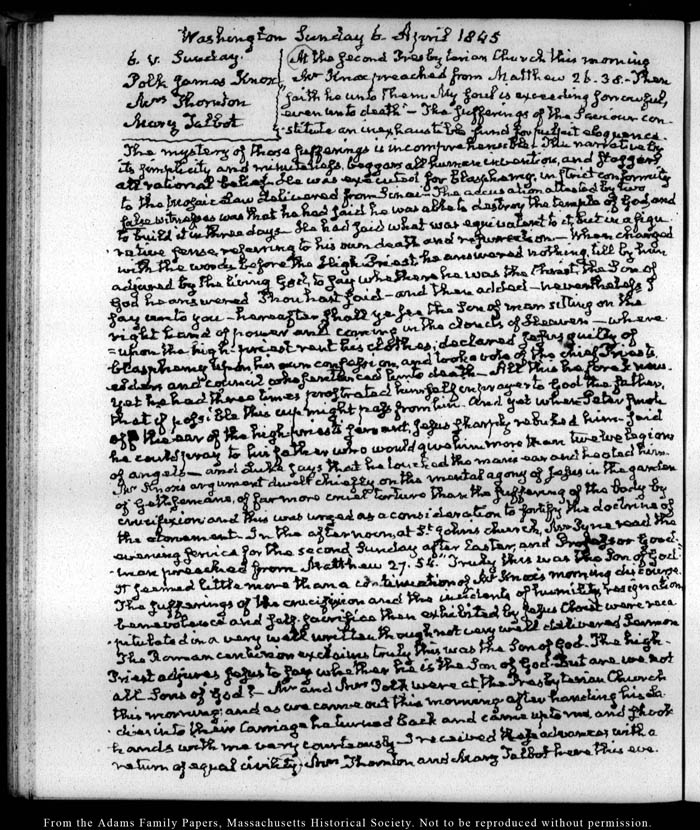 Washington Sunday 6. April 1845
6. V. Sunday.
Polk James Knox
Mrs Thornton
Mary Talbot
At the second Presbyterian Church this morning
Mr Knox preached from Matthew 26.38. Then
saith he unto them My soul is exceeding sorrowful,
even unto death"— The sufferings of the Saviour con-
stitute an inexhaustible fund for pulpit eloquence.
The mystery of those sufferings is incomprehensible. The narrative by
its simplicity and minuteness, beggars all human invention, and staggers
all rational belief. He was executed for blasphemy, in strict conformity
to the Mosaic Law delivered from Sinai— The accusation attested by two
false witnesses was that he had said he was able to destroy the temple of God and
to build it in three days— He had said what was equivalent to it, but in a figu-
rative sense, referring to his own death and resurrection— When charged
with the words before the High Priest he answered nothing, till by him
adjured by the living God, to say whether he was the Christ, the Son of
God he answered Thou hast said— and then added— nevertheless I
say unto you— hereafter shall ye see the Son of man sitting on the
right hand of power and coming in the clouds of Heaven— where
=upon the high-priest rent his clothes, declared Jesus guilty of
blasphemy upon his own confession, and took a vote of the chief Priests
elders and council who sentenced him to death— All this he foreknew.
yet he had three times prostrated himself in prayer to God the father,
that if possible this cup might pass from him. And yet when Peter smote
off the ear of the high-priest's servant, Jesus sharply rebuked him— said
he could pray to his father who would give him more than twelve legions
of angels— and Luke says that he touched the mans ear and healed him.
Mr Knox's argument dwelt chiefly on the mental agony of Jesus in the garden
of Gethsemane, of far more cruel torture than the suffering of the body by
crucifixion and this was urged as a consideration to fortify the doctrine of
the atonement— In the afternoon, at St. John's church, Mr Pyne read the
evening service for the second Sunday after Easter, and Professor Good-
man preached from Matthew 27.54. "Truly this was the Son of God."
It seemed little more than a continuation of Mr Knox's morning discourse.
The sufferings of the crucifixion and the incidents of humility, resignation
benevolence and self-sacrifice then exhibited by Jesus Christ were reca-
pitulated in a very well written though not very well delivered Sermon
The Roman centurion exclaims truly this was the Son of God. The high-
Priest adjures Jesus to say whether he is the Son of God. But are we not
all Sons of God?— Mr and Mrs Polk were at the Presbyterian Church
this morning; and as we came out this morning after handing his La-
dies into their Carriage he turned back and came up to me and shook
hands with me very courteously. I received these advances with a
return of equal civility. Mrs Thornton and Mary Talbot here this eve.
From the Adams Family Papers, Massachusetts Historical Society. Not to be reproduced without permission.